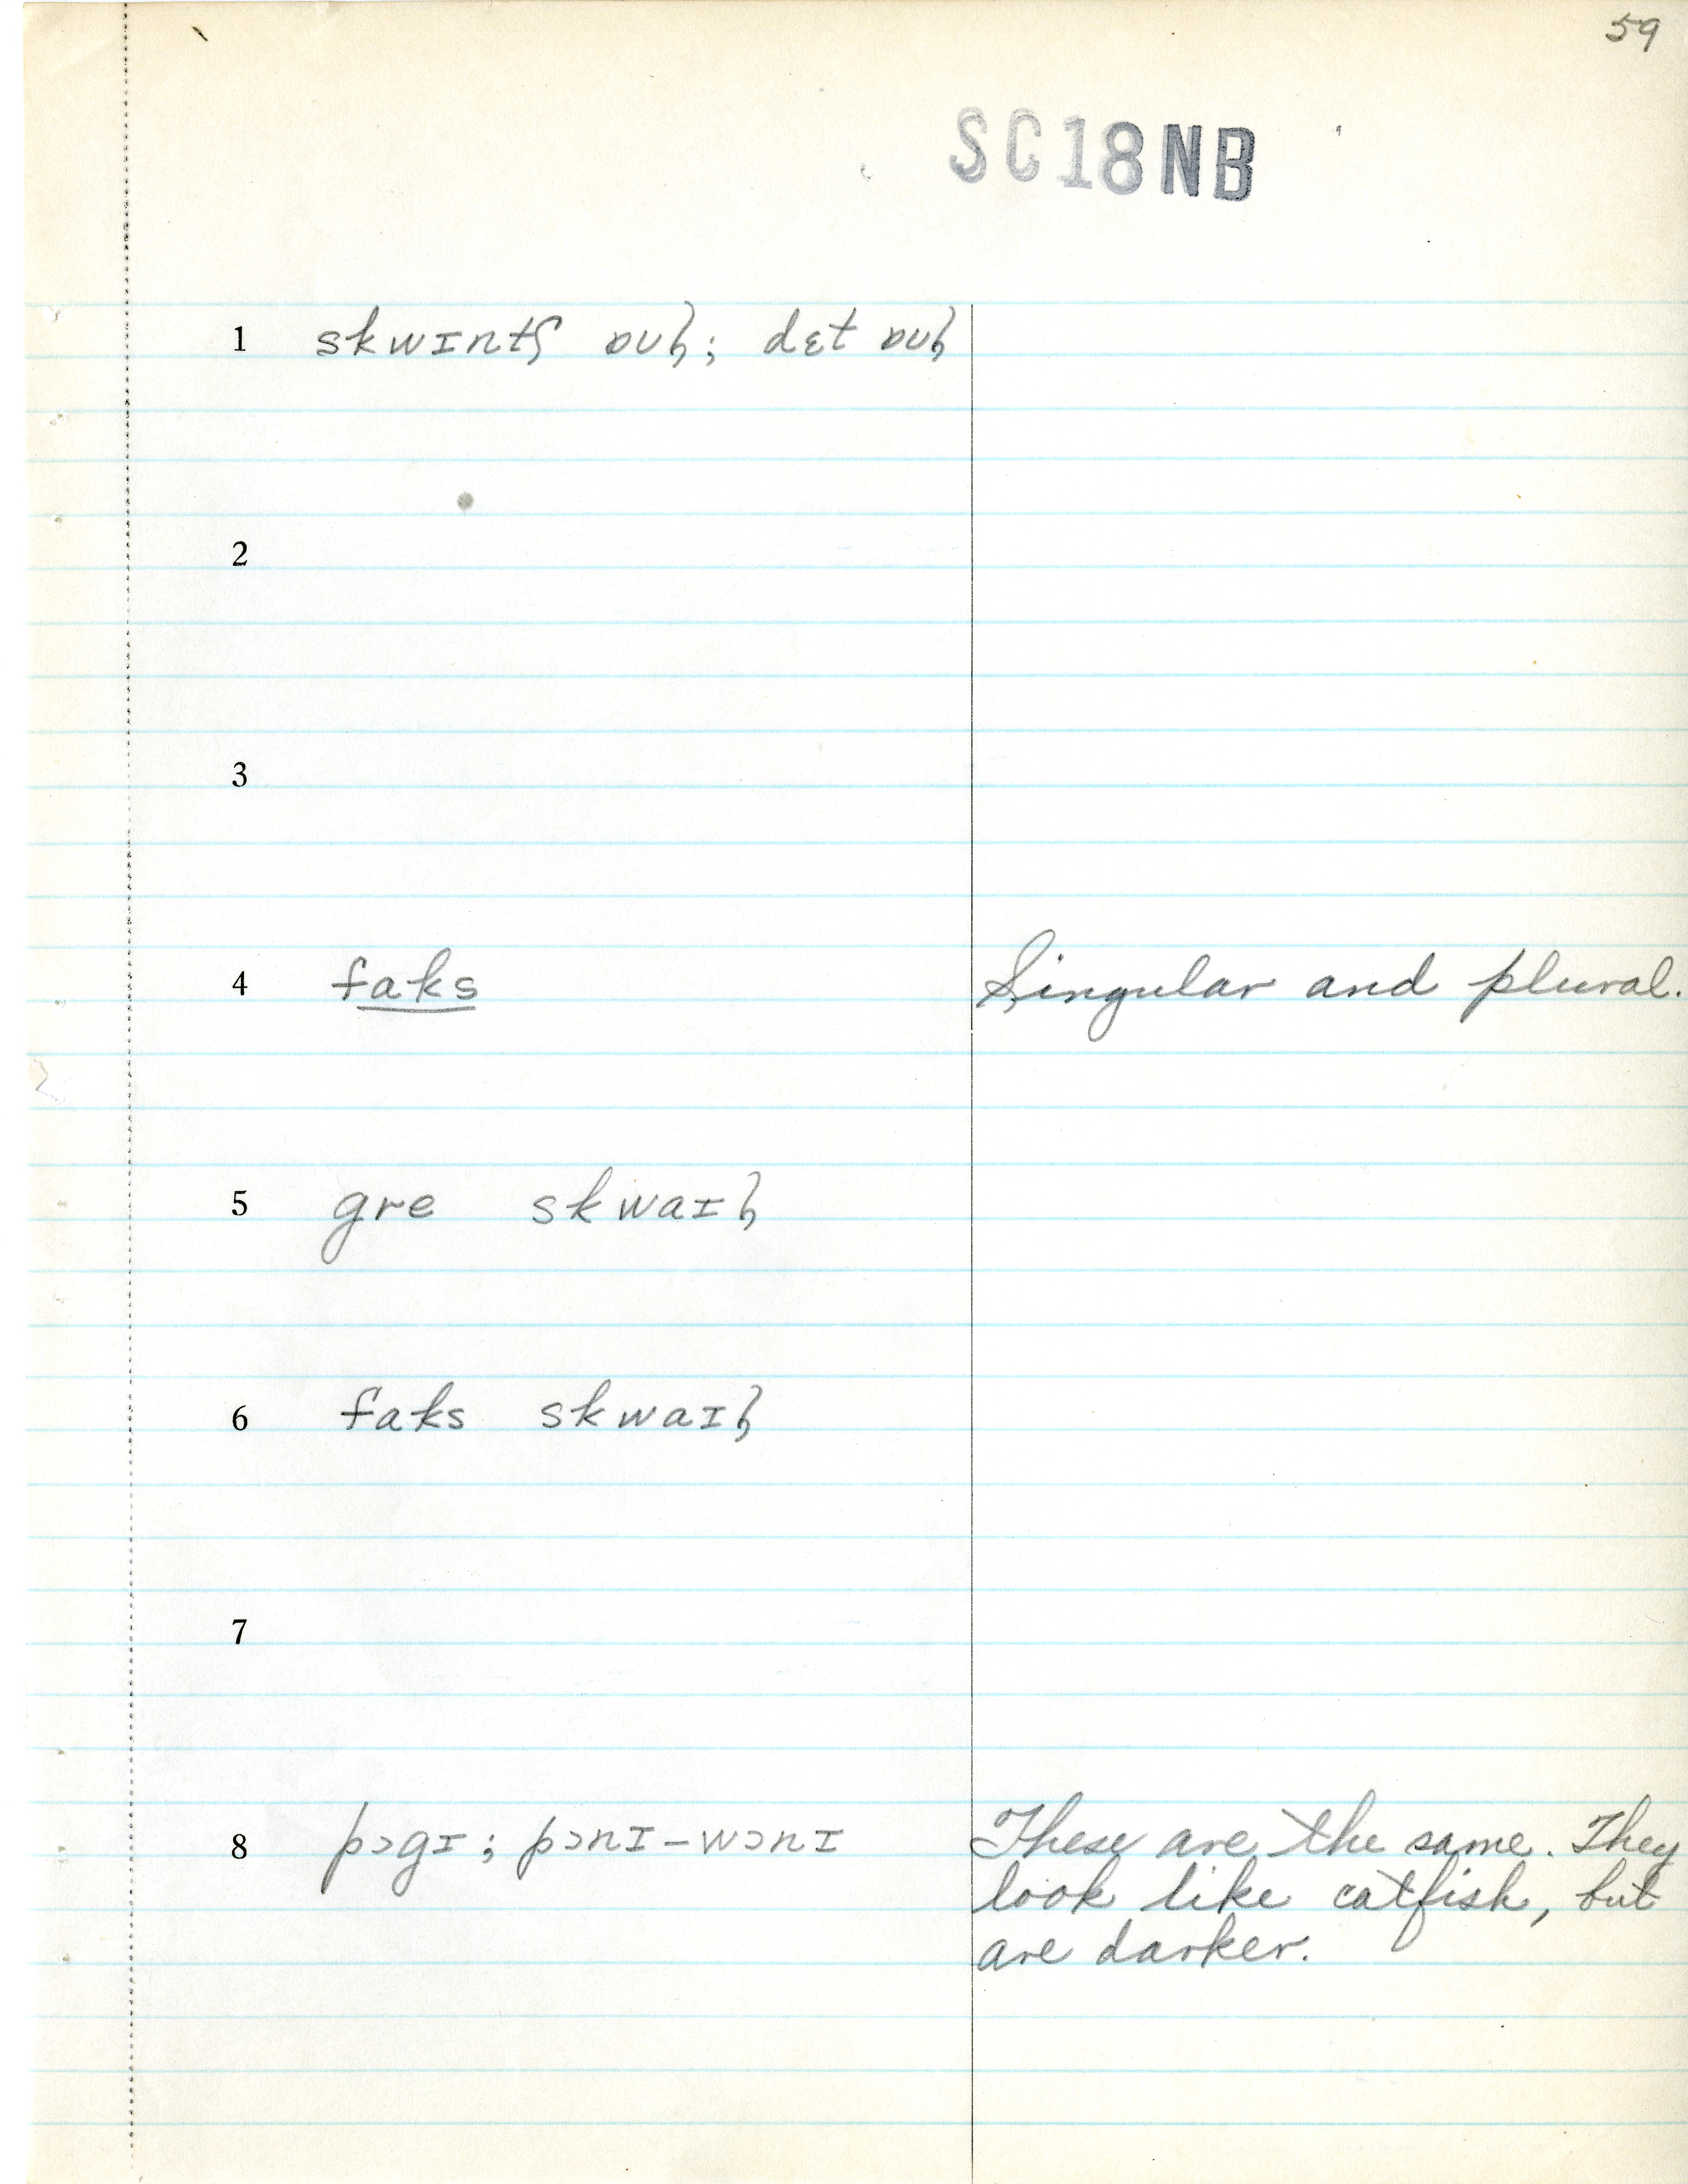 59
SC18NB
1 skwɪntʃ ɒʊɫ; dɛt ɒʊɫ
2
3
4 faks Singular and plural.
5 gre skwaɪɫ
6 faks skwaɪɫ
7
8 pɔgɪ; pɔnɪ-wɔnɪ These are the same. They
look like catfish, but
are darker.